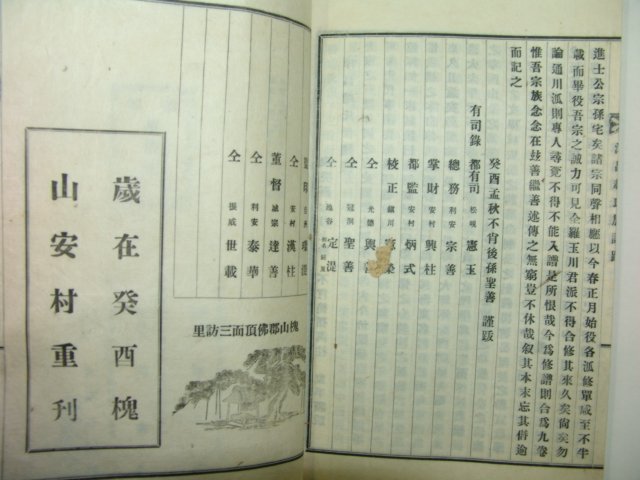 進士公宗孫宅矣諸宗同聲相應以今春正月始役各派修單咸至不半
歲而畢役吾宗之誠力可見全羅玉川君派不得合修其來久矣尙矣勿
論通川派則專人尋覓不得不能入譜是所恨哉今爲修譜則合爲九卷
惟吾宗族念念在玆善繼善述傳之無窮豈不休哉叙其本末忘其僭逾
而記之
癸酉孟秋不肖後孫聖善 謹跋
有司錄
都有司 憲玉
總務 利安 宗善
掌財 安村 興柱
都監 安村 炳式
校正 鎭川
仝 光德 興善
仝 聖善
仝 定湜
仝 安村 漢柱
董督 達善
仝 利安 泰華
仝 世載
槐山郡佛頂面三訪里
歲在癸酉槐
山安村重刊